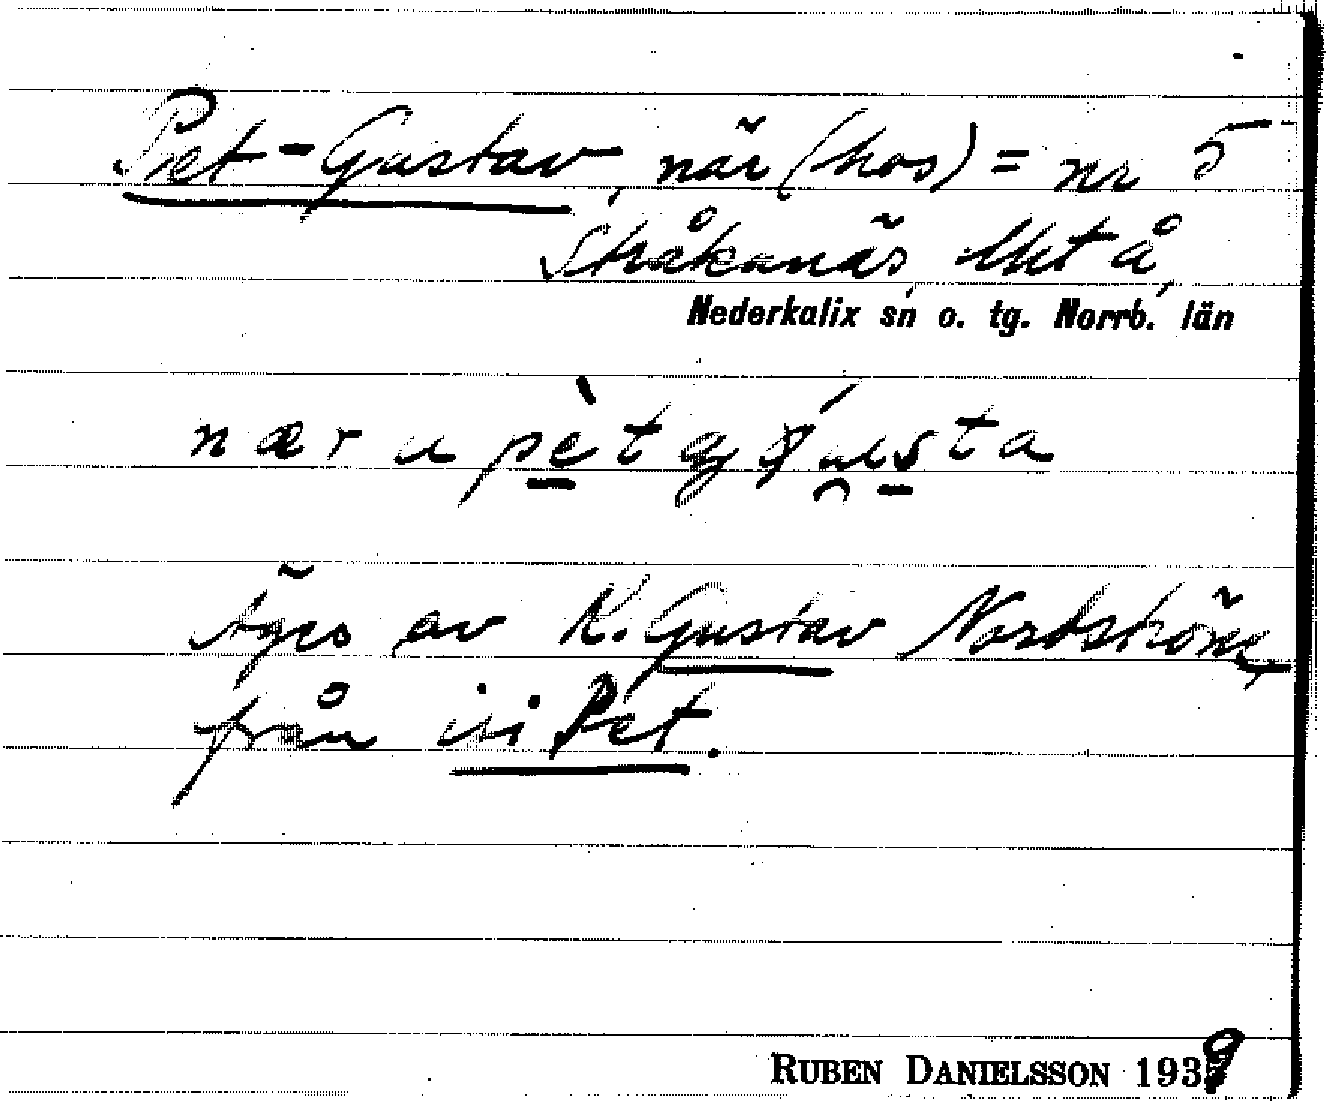 Pet-Gustav, när (hos) = nr 5
Stråkanäs,
Nederkalix sn o. tg. Norrb. län
Äges av K. Gustav Nordström
från isi Pet.
RUBEN DANIELSSON 1939